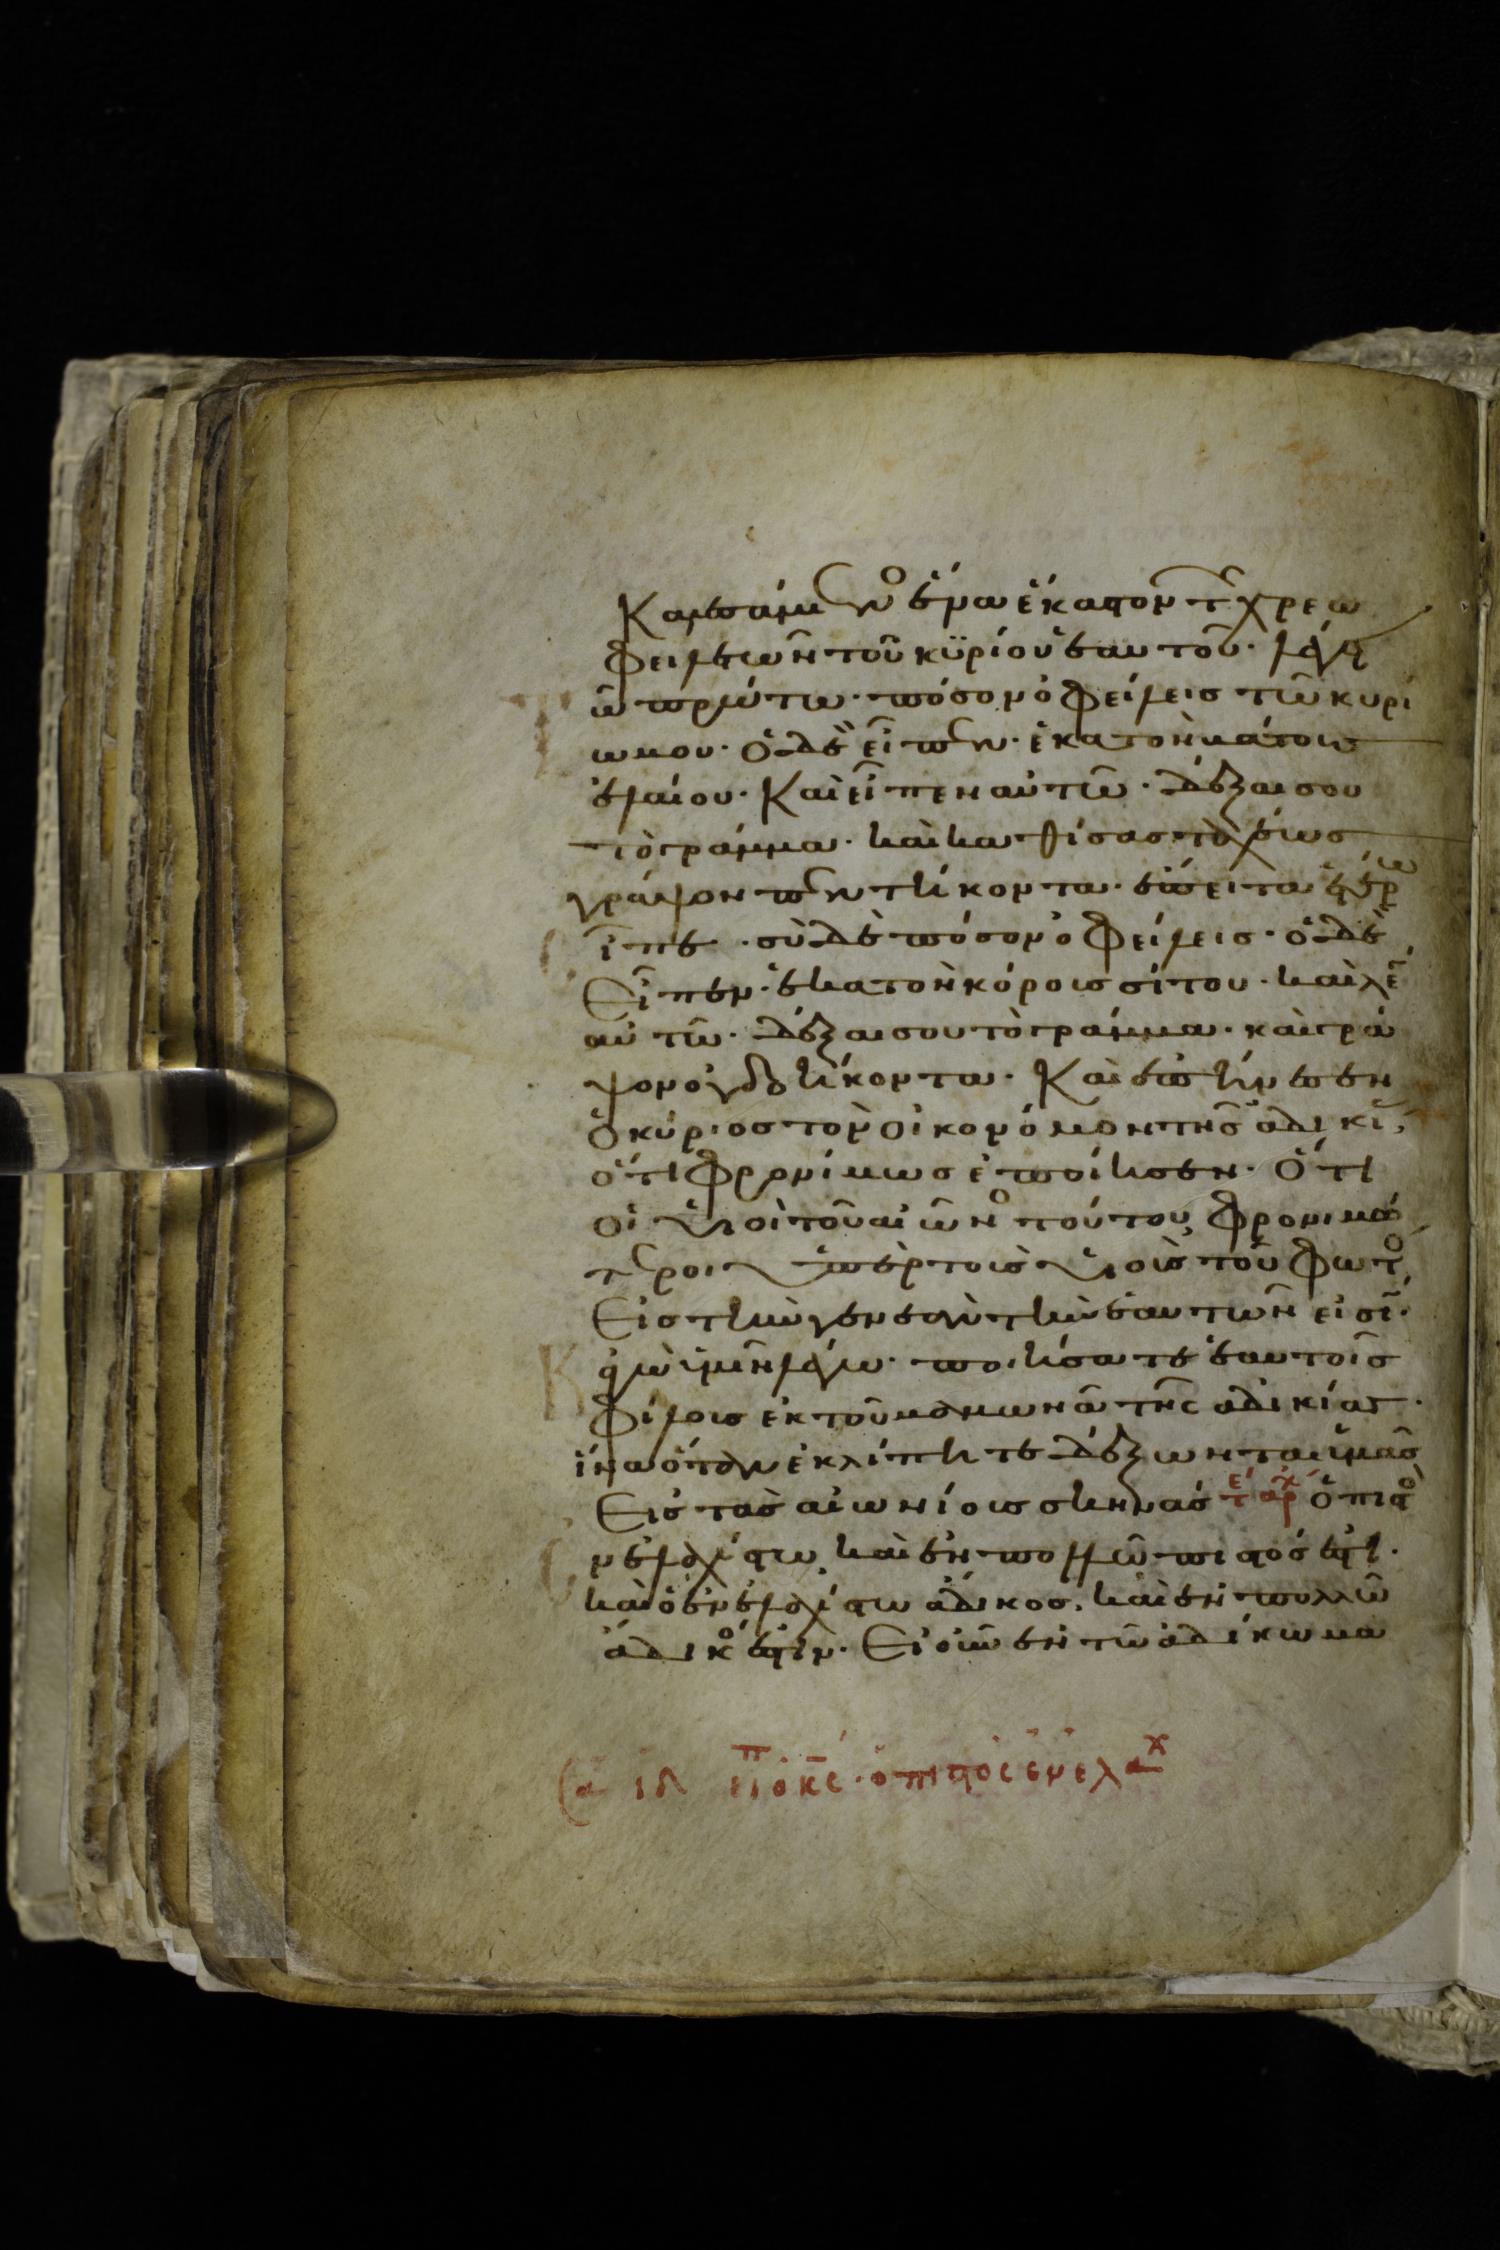 Καλεσάμενος ἕνα ἕκαστον τ χρεω
φειλετῶν τοῦ κϋρίου ἑαυτοῦ· λέγει
ῶ πρώτω· πόσον ὀφείλεις τῶ κυρί
ω μου· ὁ δὲ εἶπεν· ἑκατὸν βάτους
ἐλαίου· Καὶ εἶπεν αὐτῶ· δέξαι σου
τὸ γράμμα· καὶ καθίσας ταχέως
γράψον πεντήκοντα· ἔπειτα ἑτέρω
ἶπε· σὺ δὲ πόσον ὀφείλεις· ὁ δὲ
Εἶπεν· ἑκατὸν κόρους σίτου· καὶ λέ
αὐτῶ· δέξαι σου τὸ γράμμα· καὶ γρά
ψον ὀγδοήκοντα· Καὶ ἐπήνεσεν
ὁ κύριος τὸν οἰκονόμον τῆς ἀδικί
ὅτι φρονίμως ἐποίησεν· Ὅτι
οἱ υἱοὶ τοῦ αἰῶνο τούτου φρονιμώ
τεροι ὑπὲρ τοὺς υἱοὺς τοῦ φωτὸ
Εἰς τὴν γενεὰν τὴν ἑαυτῶν εἰσί·
ἀγὼ ὑμῖν λέγω· ποιήσατε ἑαυτοῖς
φίλους ἐκ τοῦ μαμωνᾶ τῆς ἀδικίας·
ἵνα ὅταν ἐκλίπητε δέξωνται ὑμᾶς
Εἰς τὰς αἰωνίους σκηνάς τέ ἀρχ ὁ πιστὸ
ν ἐλαχίστω καὶ ἐν πολλῶ πιστός ἐστι·
καὶ ὁ ἐν ἐλαχίστω ἄδικος, καὶ ἐν πολλῶ
ἄδικό ἐστιν· Εἰ οὖν ἐν τῶ ἀδίκω μα
εἶπ ὁ κς· ὁ πιστὸς ἐν ελαχ